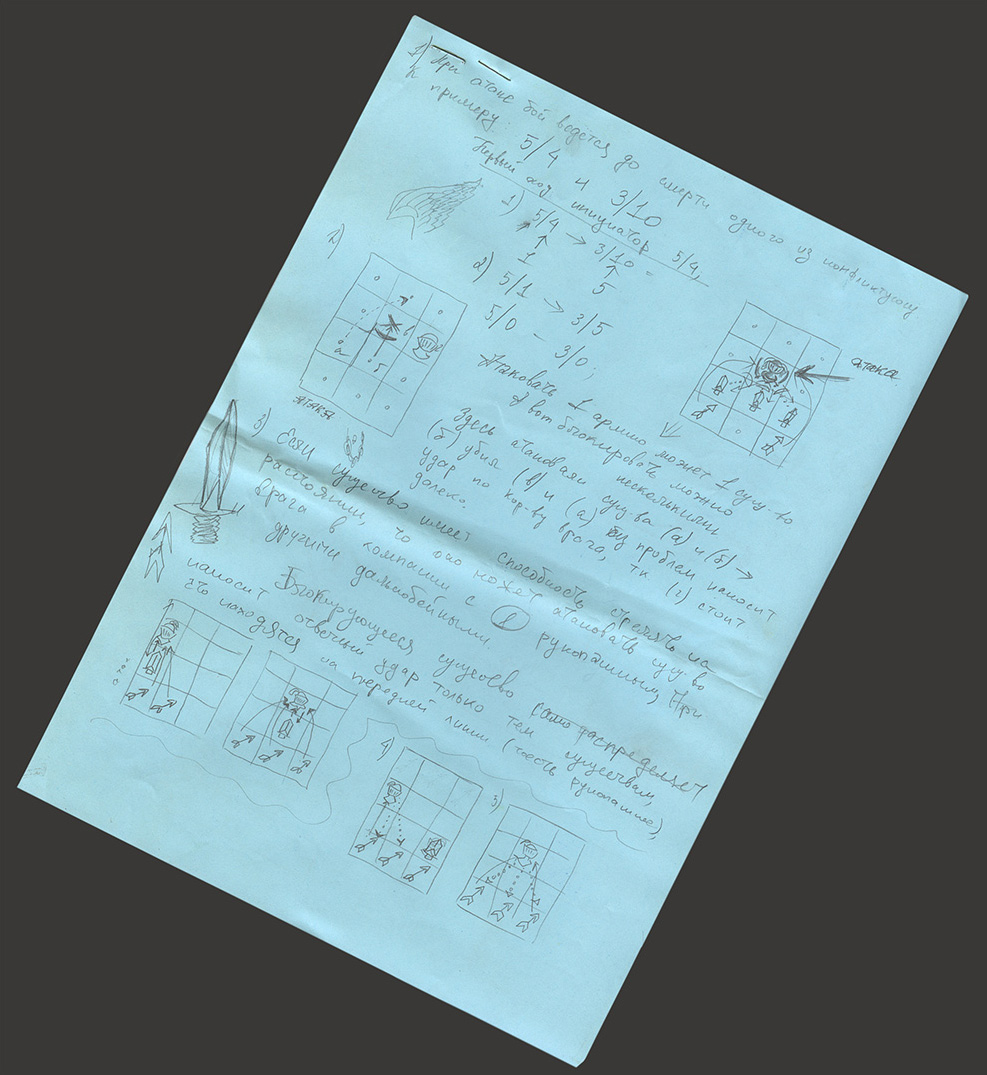 1) При атаке бой ведется до смерти одного из конфликтующ
К примеру: 5/4 и 3/10
Первый ход инициатор 5/4,
1) 5/4 → 3/10 =
1 5
2) 5/1 → 3/5
5/0 – 3/0;
2)
а
б
в
г
атака
атака
Атаковать 1 армию может 1 сущ-во
А вот блокировать можно
несколькими
Здесь атаковали сущ-ва (а) и (б) →
(б) убил (в) и (а) без проблем наносит
удар по кор-ву врага, тк (г) стоит
далеко.
3) Если существо имеет способность стрелять на
расстоянии, то оно может атаковать сущ-во
врага в компании с 1 рукопашным, При
другими дальнобойными
Блокирующееся существо само распределяет
наносит ответный удар только тем существам,
что находятся на передней линии (тоесть рукопашные)
4)
5)